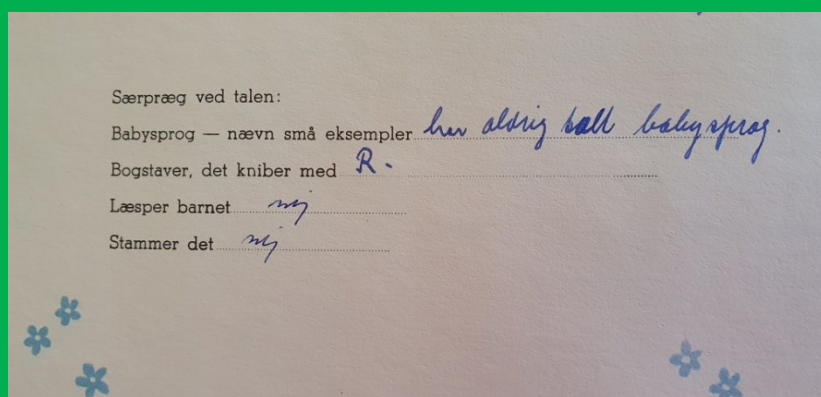 Særpræg ved talen:
Babysprog — nævn små eksempler har aldrig talt babysprog.
Bogstaver, det kniber med R.
Læsper barnet nej
Stammer det nej